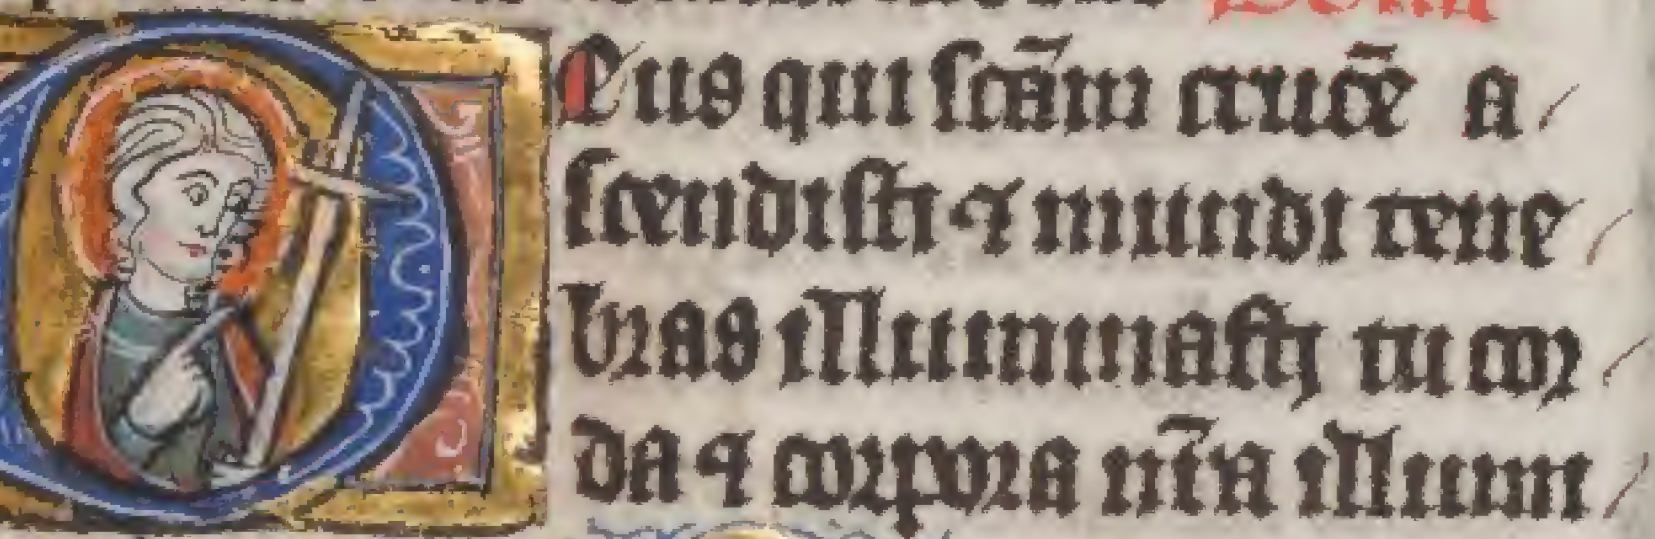 Eus qui scãm crucẽ a
scendisti ⁊ mundi tene
bras illuminasti tu cor
da ⁊ corpora nr̃a illumi